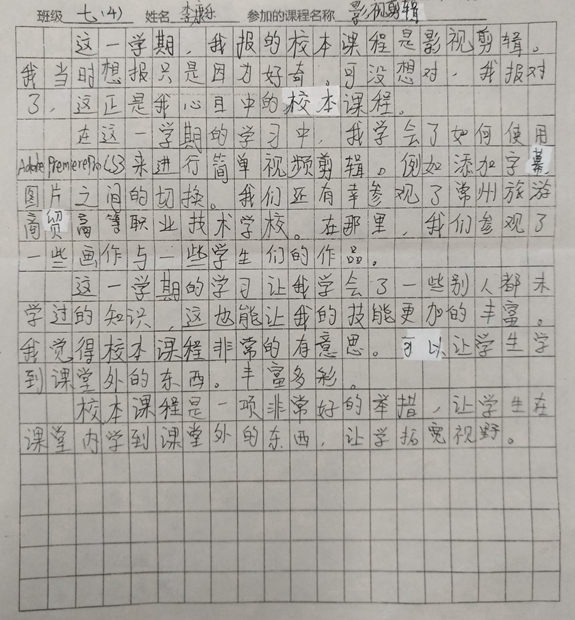 班级 七.(4) 姓名 李 参加的课程名称 影视剪辑
这一学期，我报的校本课程是影视剪辑。
我当时想报只是因为好奇。可没想对，我报对
了，这正是我心目中的校本课程。
在这一学期的学习中，我学会了如何使用
Adobe Premiere Pro CS3来进行简单视频剪辑。例如添加字幕
图片之间的切换。我们还有幸参观了常州旅游
商贸高等职业技术学校。在那里，我们参观了
一些画作与一些学生们的作品。
这一学期的学习让我学会了一些别人都未
学过的知识，这也能让我的技能更加的丰富。
我觉得校本课程非常的有意思。可以让学生学
到课堂外的东西。丰富多彩。
校本课程是一项非常好的举措，让学生在
课堂内学到课堂外的东西，让学拓宽视野。